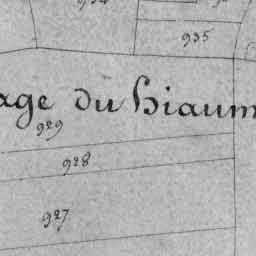 935
age du hiaum
929
928
927